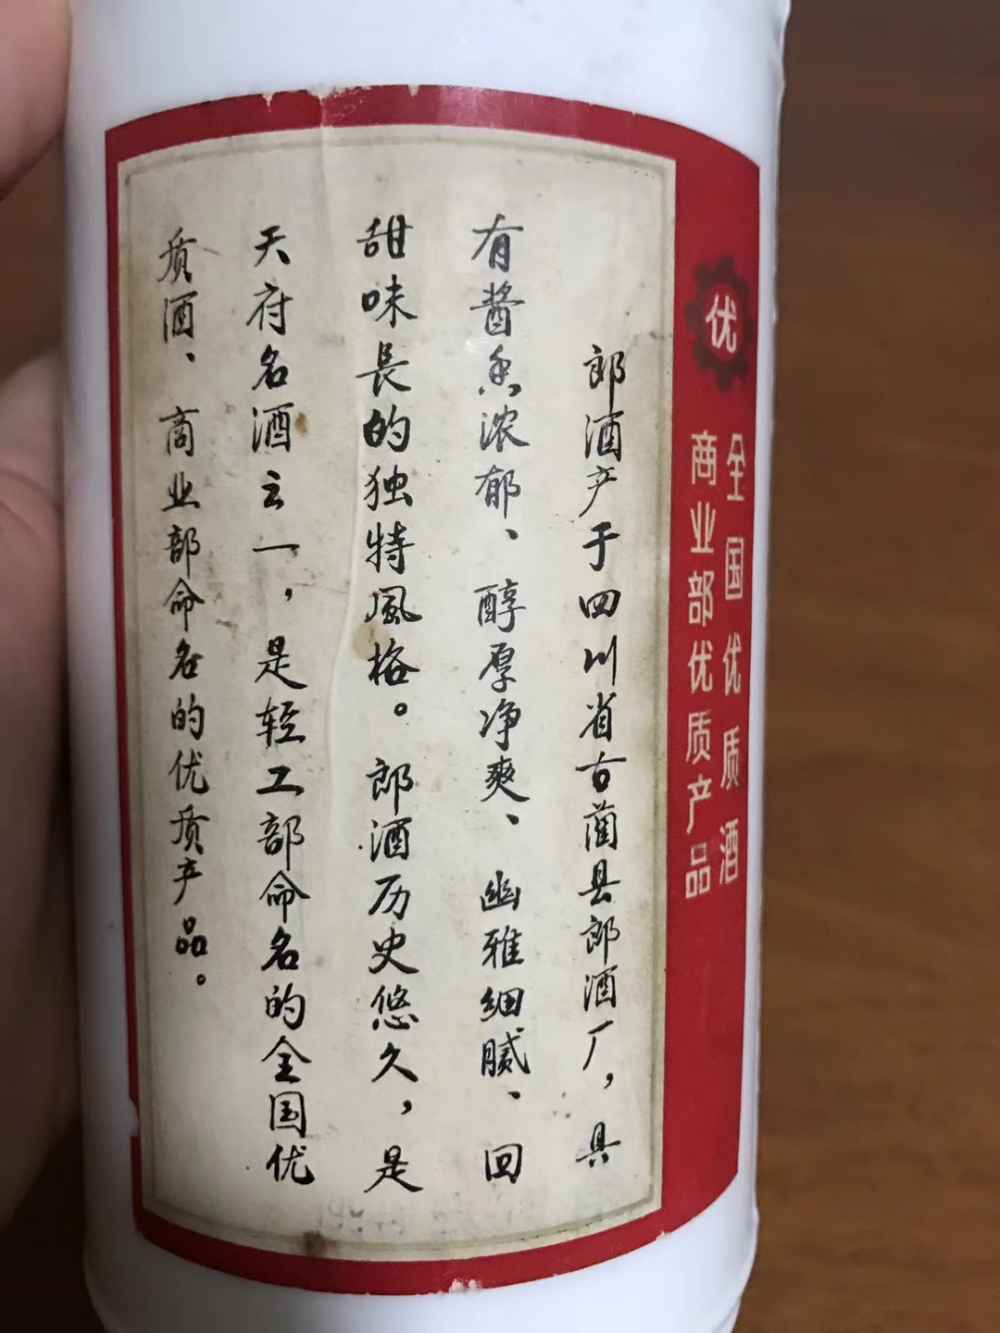 优
全国优质酒
商业部优质产品
郎酒产于四川省古蔺县郎酒厂，具
有酱香浓郁、醇厚净爽、幽雅细腻、回
甜味長的独特風格。郎酒历史悠久，是
天府名酒之一，是轻工部命名的全国优
质酒、商业部命名的优质产品。